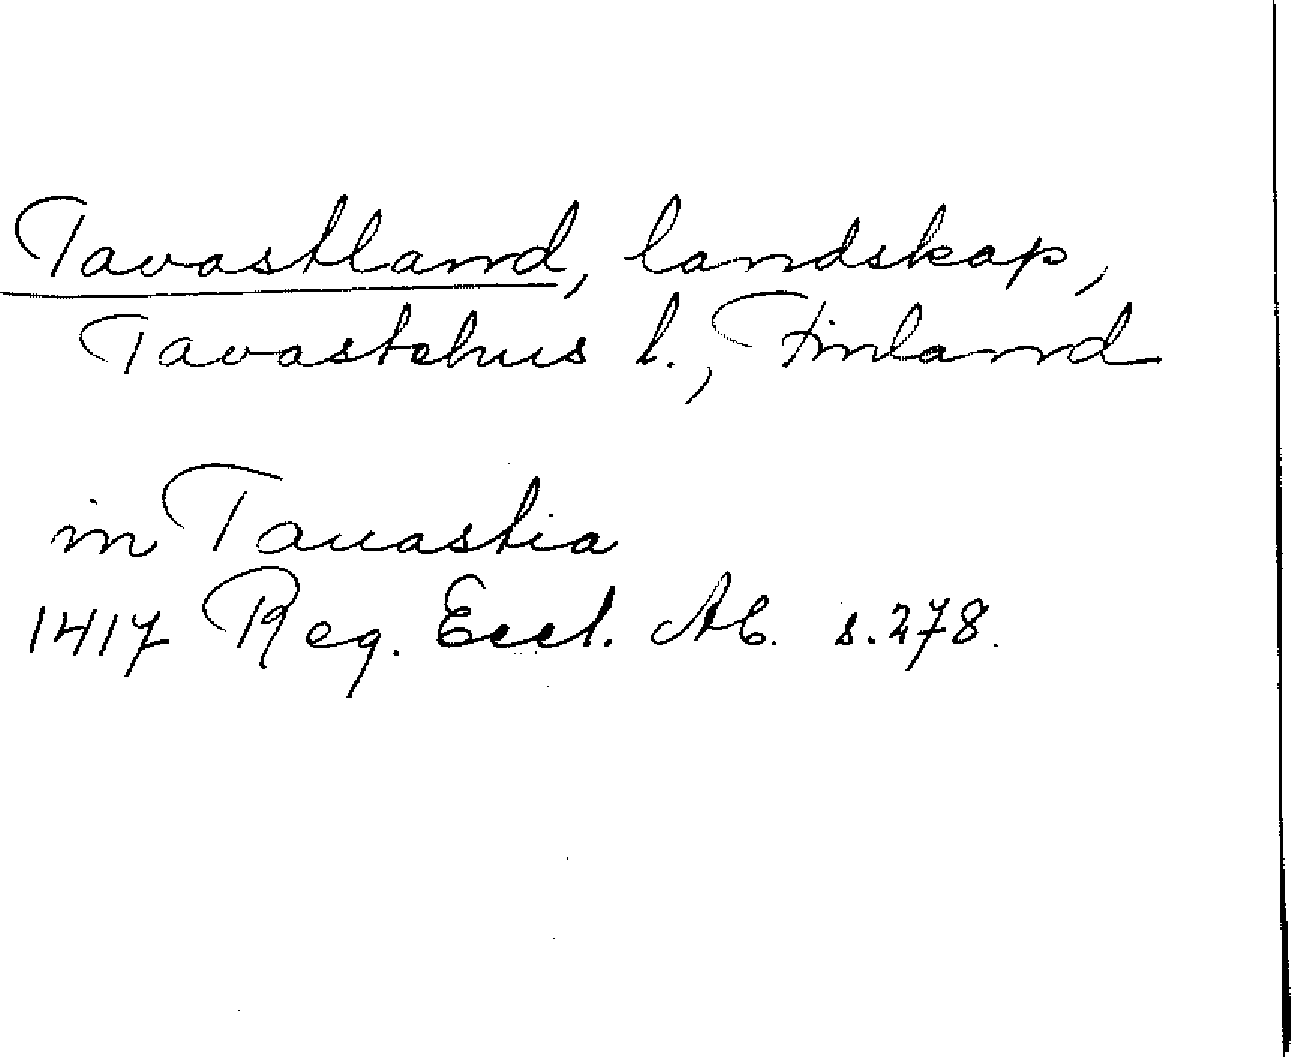 Tavastland, landskap,
Tavastehus l., Finland
in Tauastia
1417 Reg. Eccl. Ab. s. 278.